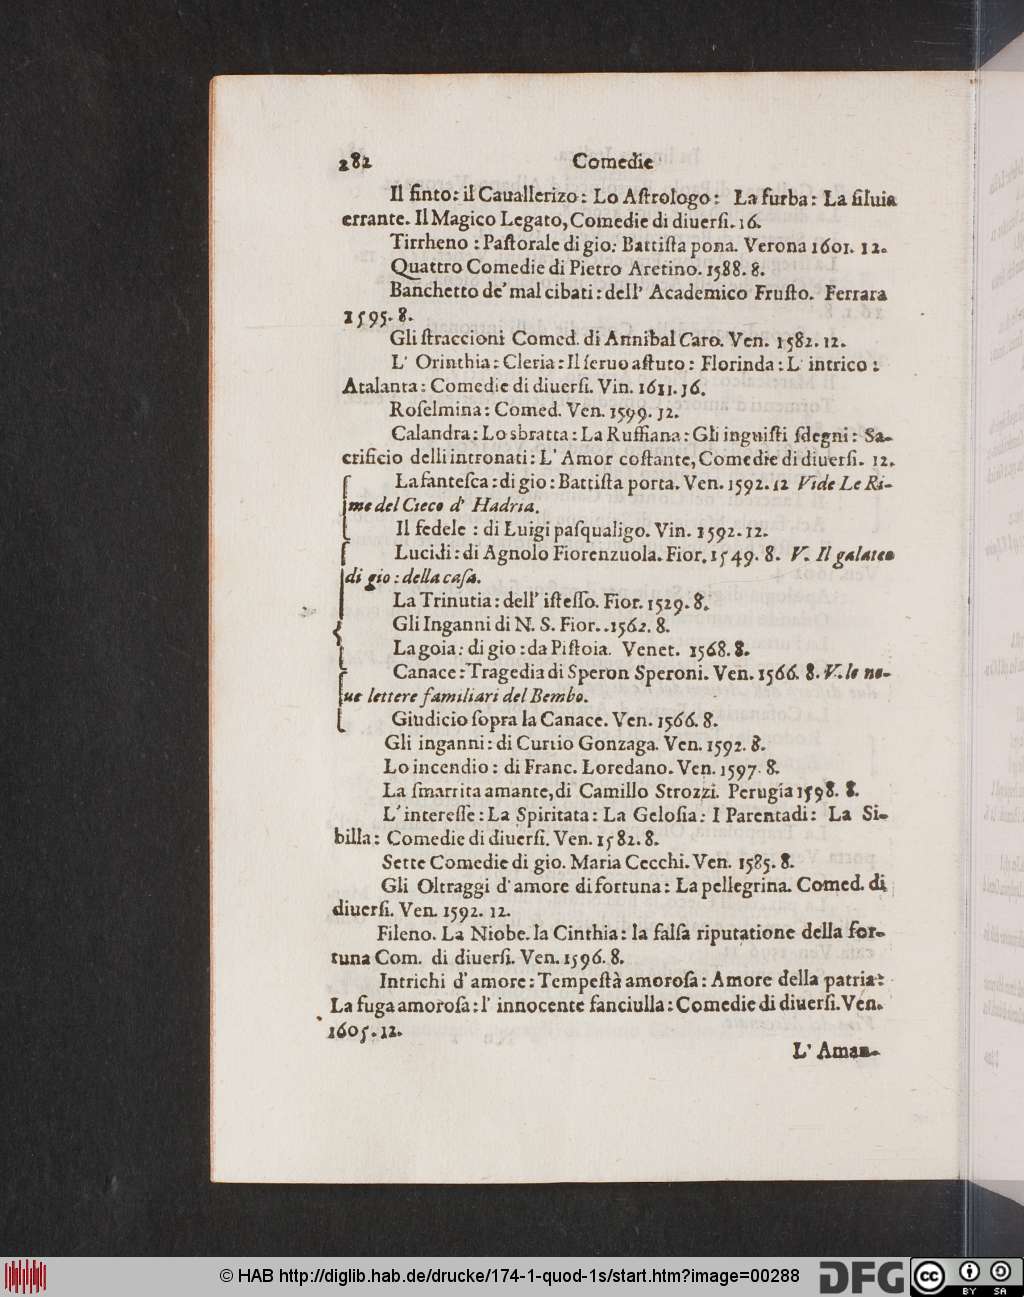 282 Comedie
Il finto: il Cauallerizo: Lo Aſtrologo: La furba: La ſiluia
errante. Il Magico Legato, Comedie di diuerſi. 16.
Tirrheno: Paſtorale di gio: Battiſta pona. Verona 1601. 12.
Quattro Comedie di Pietro Aretino. 1588. 8.
Banchetto de' mal cibati: dell' Academico Fruſto. Ferrara
1595. 8.
Gli ſtraccioni Comed. di Annibal Caro. Ven. 1582. 12.
L' Orinthia: Cleria: Il ſeruo aſtuto: Florinda: L' intrico:
Atalanta: Comedie di diuerſi. Vin. 1611. 16.
Roſelmina: Comed. Ven. 1599. 12.
Calandra: Lo sbratta: La Ruffiana: Gli inguiſti ſdegni: Sa-
crificio delli intronati: L' Amor coſtante, Comedie di diuerſi. 12.
La fanteſca: di gio: Battiſta porta. Ven. 1592. 12 Vide Le Ri-
me del Cieco d' Hadria.
Il fedele: di Luigi paſqualigo. Vin. 1592. 12.
Lucidi: di Agnolo Fiorenzuola. Fior. 1549. 8. V. Il galateo
di gio: della caſa.
La Trinutia: dell' iſteſſo. Fior. 1529. 8.
Gli Inganni di N. S. Fior. .1562. 8.
La goia: di gio: da Piſtoia. Venet. 1568. 8.
Canace: Tragedia di Speron Speroni. Ven. 1566. 8. V. le no-
ue lettere familiari del Bembo.
Giudicio ſopra la Canace. Ven. 1566. 8.
Gli inganni: di Curtio Gonzaga. Ven. 1592. 8.
Lo incendio: di Franc. Loredano. Ven. 1597. 8.
La ſmarrita amante, di Camillo Strozzi. Perugia 1598. 8.
L' intereſſe: La Spiritata: La Geloſia: I Parentadi: La Si-
billa: Comedie di diuerſi. Ven. 1582. 8.
Sette Comedie di gio. Maria Cecchi. Ven. 1585. 8.
Gli Oltraggi d' amore di fortuna: La pellegrina. Comed. di
diuerſi. Ven. 1592. 12.
Fileno. La Niobe. la Cinthia: la falſa riputatione della for-
tuna Com. di diuerſi. Ven. 1596. 8.
Intrichi d' amore: Tempeſtà amoroſa: Amore della patria:
La fuga amoroſa: l' innocente fanciulla: Comedie di diuerſi. Ven.
1605. 12.
L' Aman-
© HAB http://diglib.hab.de/drucke/174-1-quod-1s/start.htm?image=00288
DFG
cc BY SA